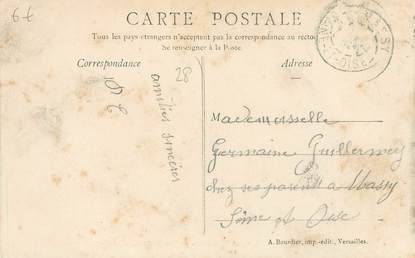 6€
CARTE POSTALE
Tous les pays étrangers n'acceptent pas la correspondance au recto
Se renseigner à la Poste.
Correspondance
Adresse
28
amitiés sincères
Mademoiselle
Germaine
chez ses parents à Massy
Seine et Oise
A. Bourdier, imp.-édit., Versailles.